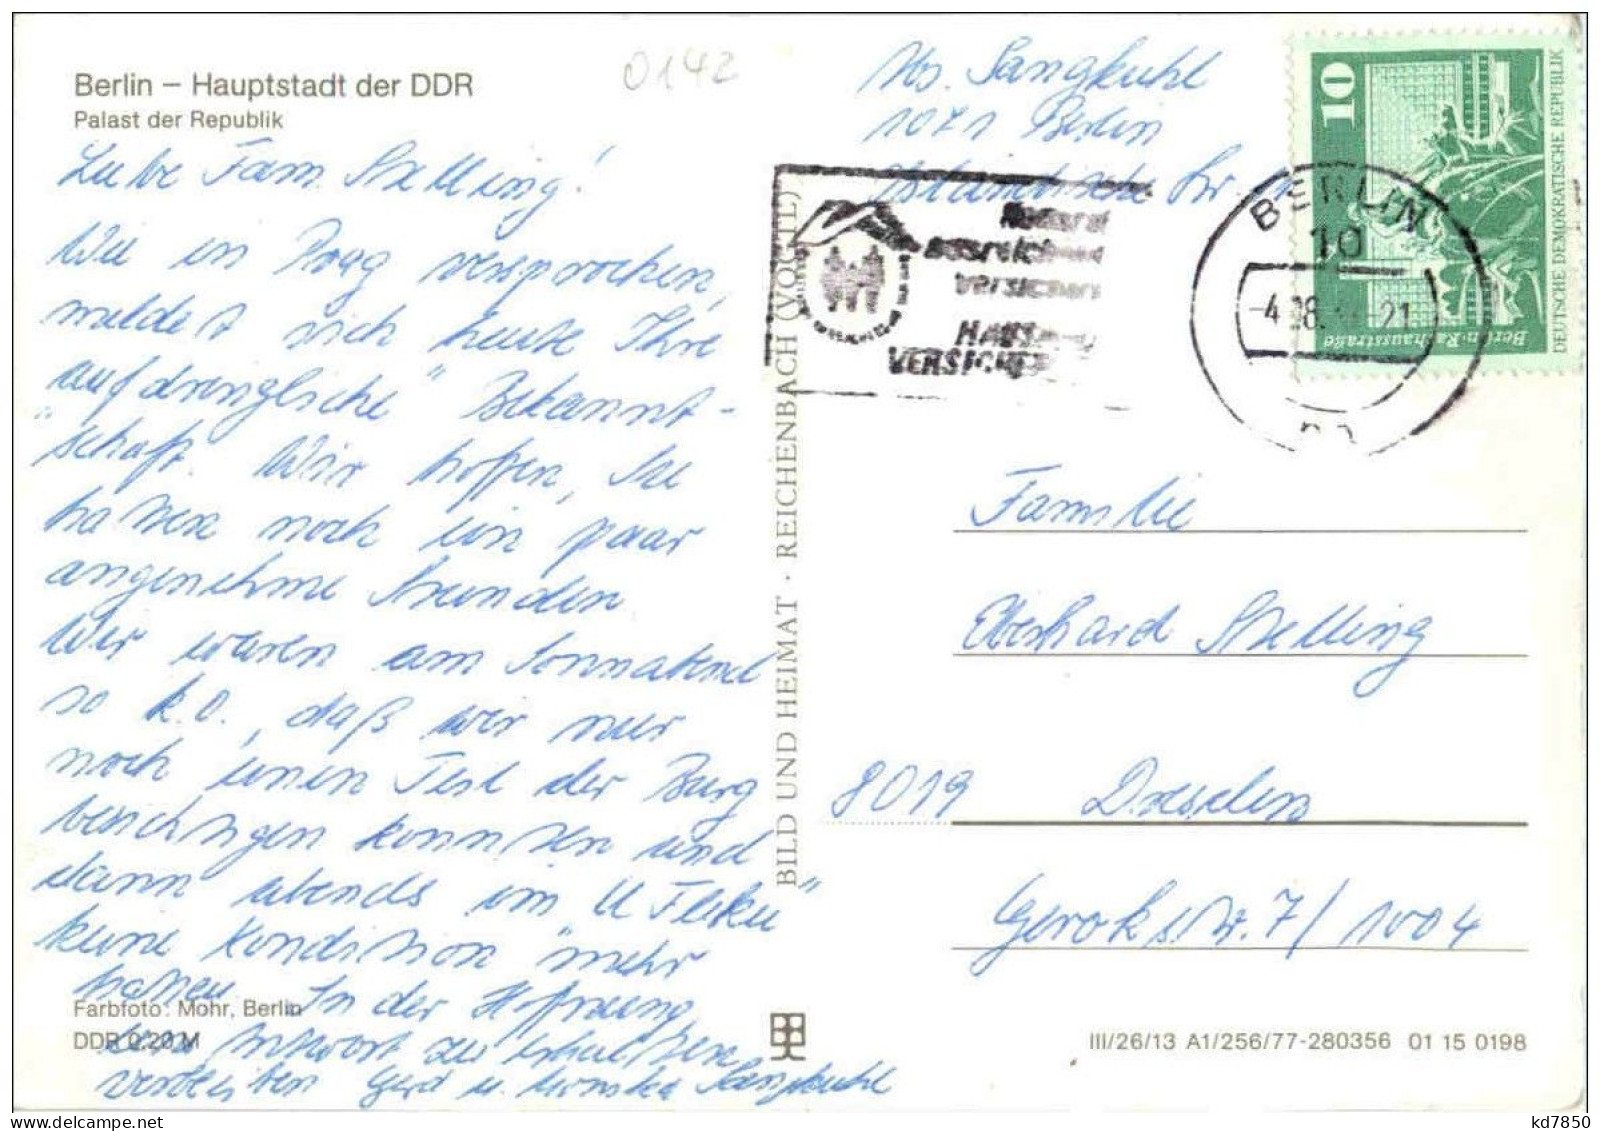 Berlin – Hauptstadt der DDR
Palast der Republik
0142
Liebe Fam. Stelling!
Wie in Prag versprochen,
meldet sich heute Ihre
"aufdrengliche" Bekannt-
schaft. Wir hoffen, Sie
hatten noch ein paar
angenehme Stunden
Wir waren am Sonnabend
so k.o., daß wir nur
noch einen Teil der Burg
besichtigen konnten und
dann abends im "U Fleku"
keine Kondition mehr
hatten. In der Hoffnung,
eine Antwort zu erhalten
verbleiben Gerd u. Sangkuhl
Farbfoto: Mohr, Berlin
DDR 0,20 M
BILD UND HEIMAT · REICHENBACH (VOGTL)
Abs. Sangkuhl
1071 Berlin
Isländische Str.
HAUS
VERSICHER
BERLIN
10
-4. 21
10
Berlin-Rathausstraße
DEUTSCHE DEMOKRATISCHE REPUBLIK
Familie
Eberhard Stelling
8019 Dresden
Gerokstr. 7/1004
III/26/13 A1/256/77-280356 01 15 0198
kd7850